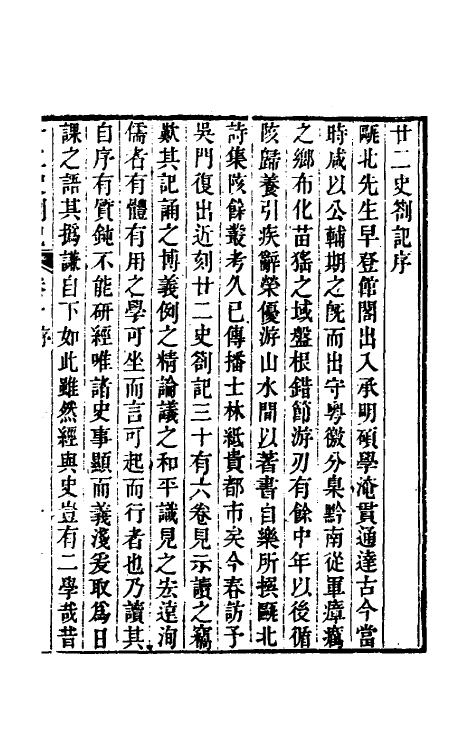 廿二史劄記序
甌北先生早登館閣出入承明碩學淹貫通達古今當
時咸以公輔期之旣而出守粵徼分臬黔南從軍瘴癘
之鄉布化苗猺之域盤根錯節游刃有餘中年以後循
陔歸養引疾辭榮優游山水閒以著書自樂所撰甌北
詩集陔餘叢考久已傳播士林紙貴都市矣今春訪予
吳門復出近刻廿二史劄記三十有六卷見示讀之竊
歎其記誦之博義例之精論議之和平識見之宏遠洵
儒者有體有用之學可坐而言可起而行者也乃讀其
自序有質鈍不能研經唯諸史事顯而義淺爰取爲日
課之語其撝謙自下如此雖然經與史豈有二學哉昔